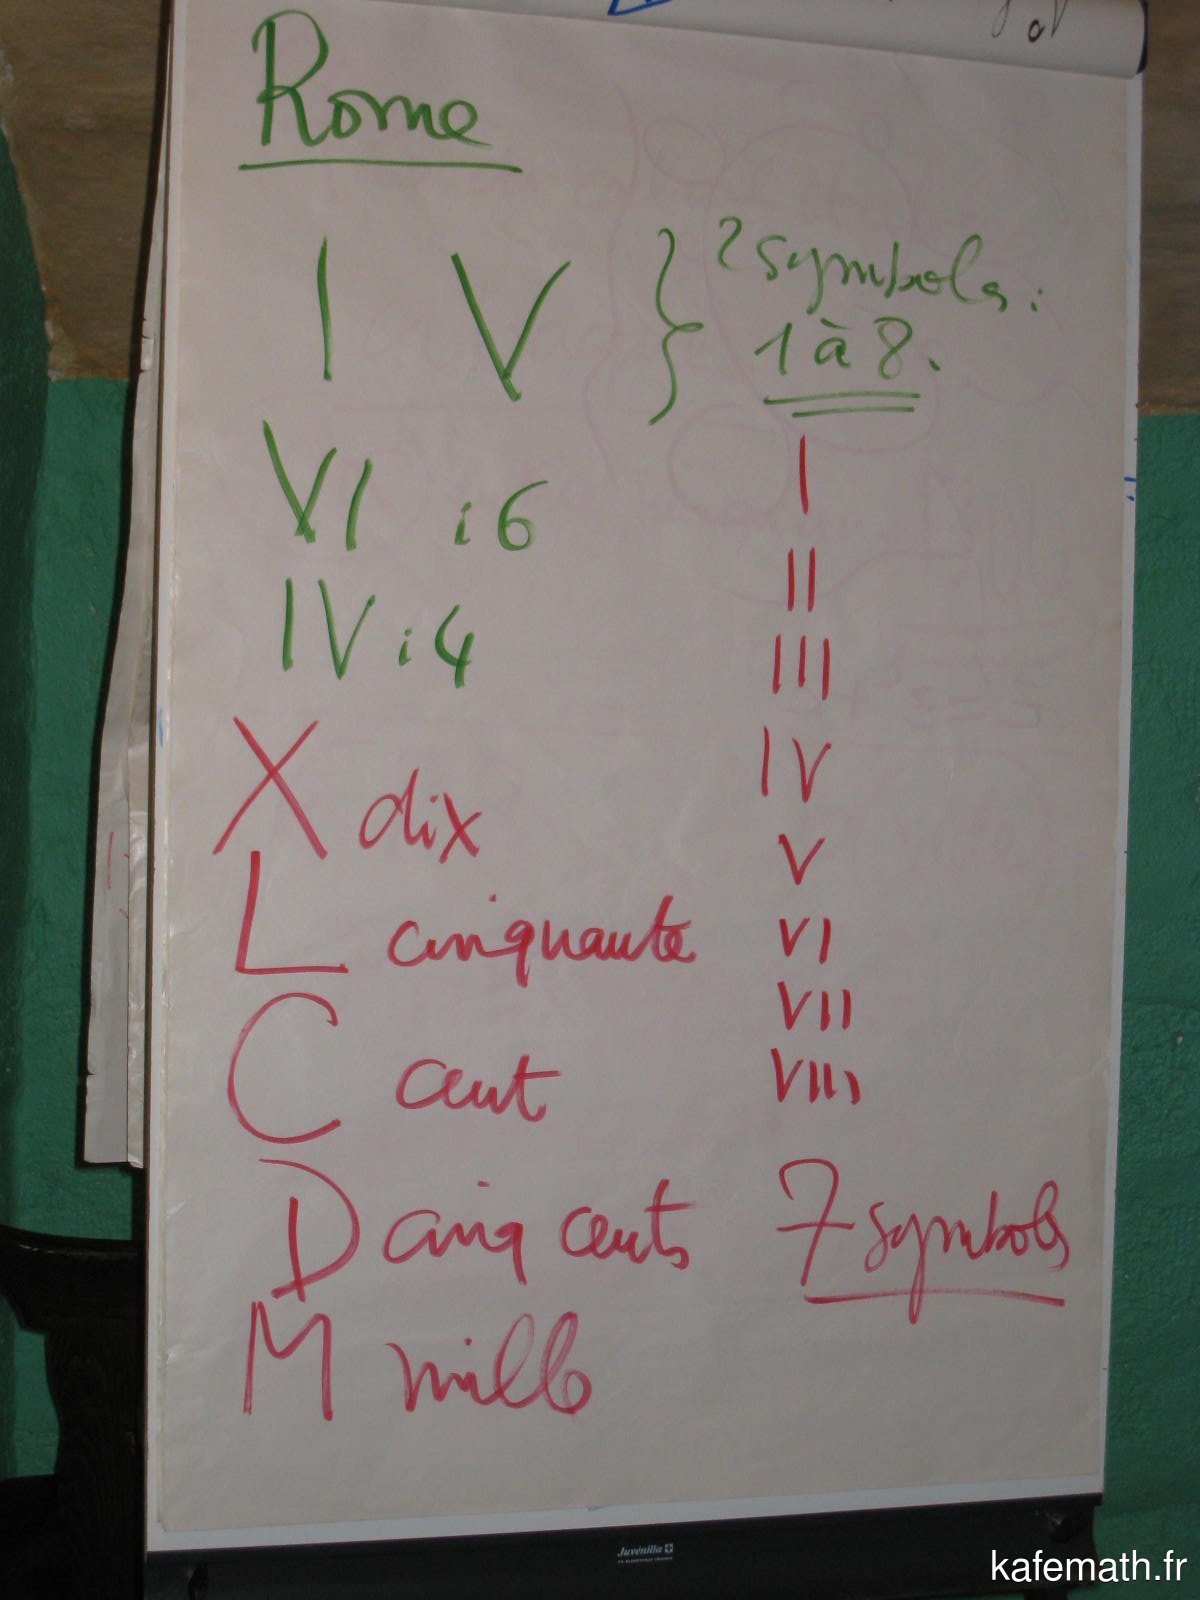 Rome
I V } 2 symbols :
1 à 8.
VI : 6
IV : 4
I
II
III
IV
V
VI
VII
VIII
X dix
L cinquante
C cent
D cinq cents
M mille
7 symbols
Juvenilia
kafemath.fr